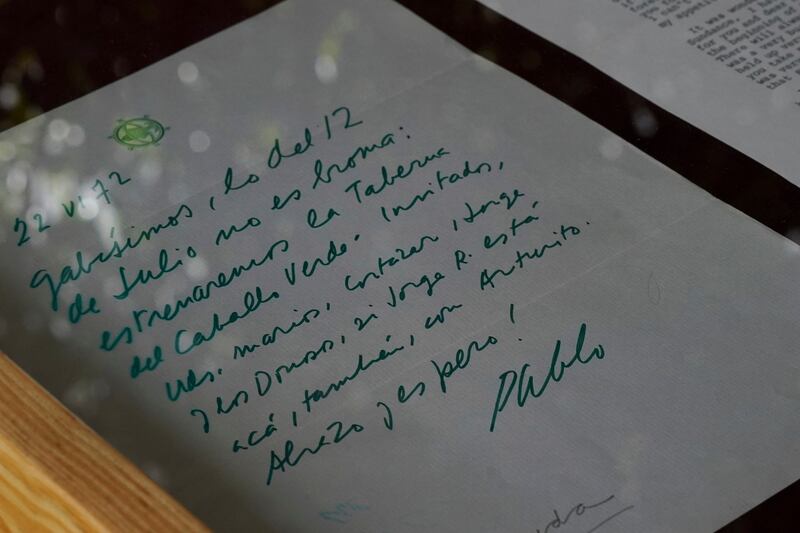 22 VI 72
gabísimos, lo del 12
de Julio no es broma:
estrenaremos la Taberna
del Caballo Verde. Invitados,
Uds. marios, Cortazar, Jorge
y los Donoso, si Jorge R. está
acá, también, con Arturito.
Abrazo y espero!
Pablo
It was
Sundance,
for you and
the beginning
There will
was a very
held up
you take
that
my appetit